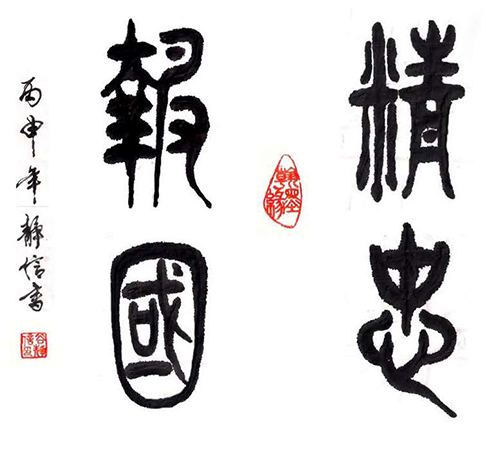 精忠
報國
丙申年靜信書